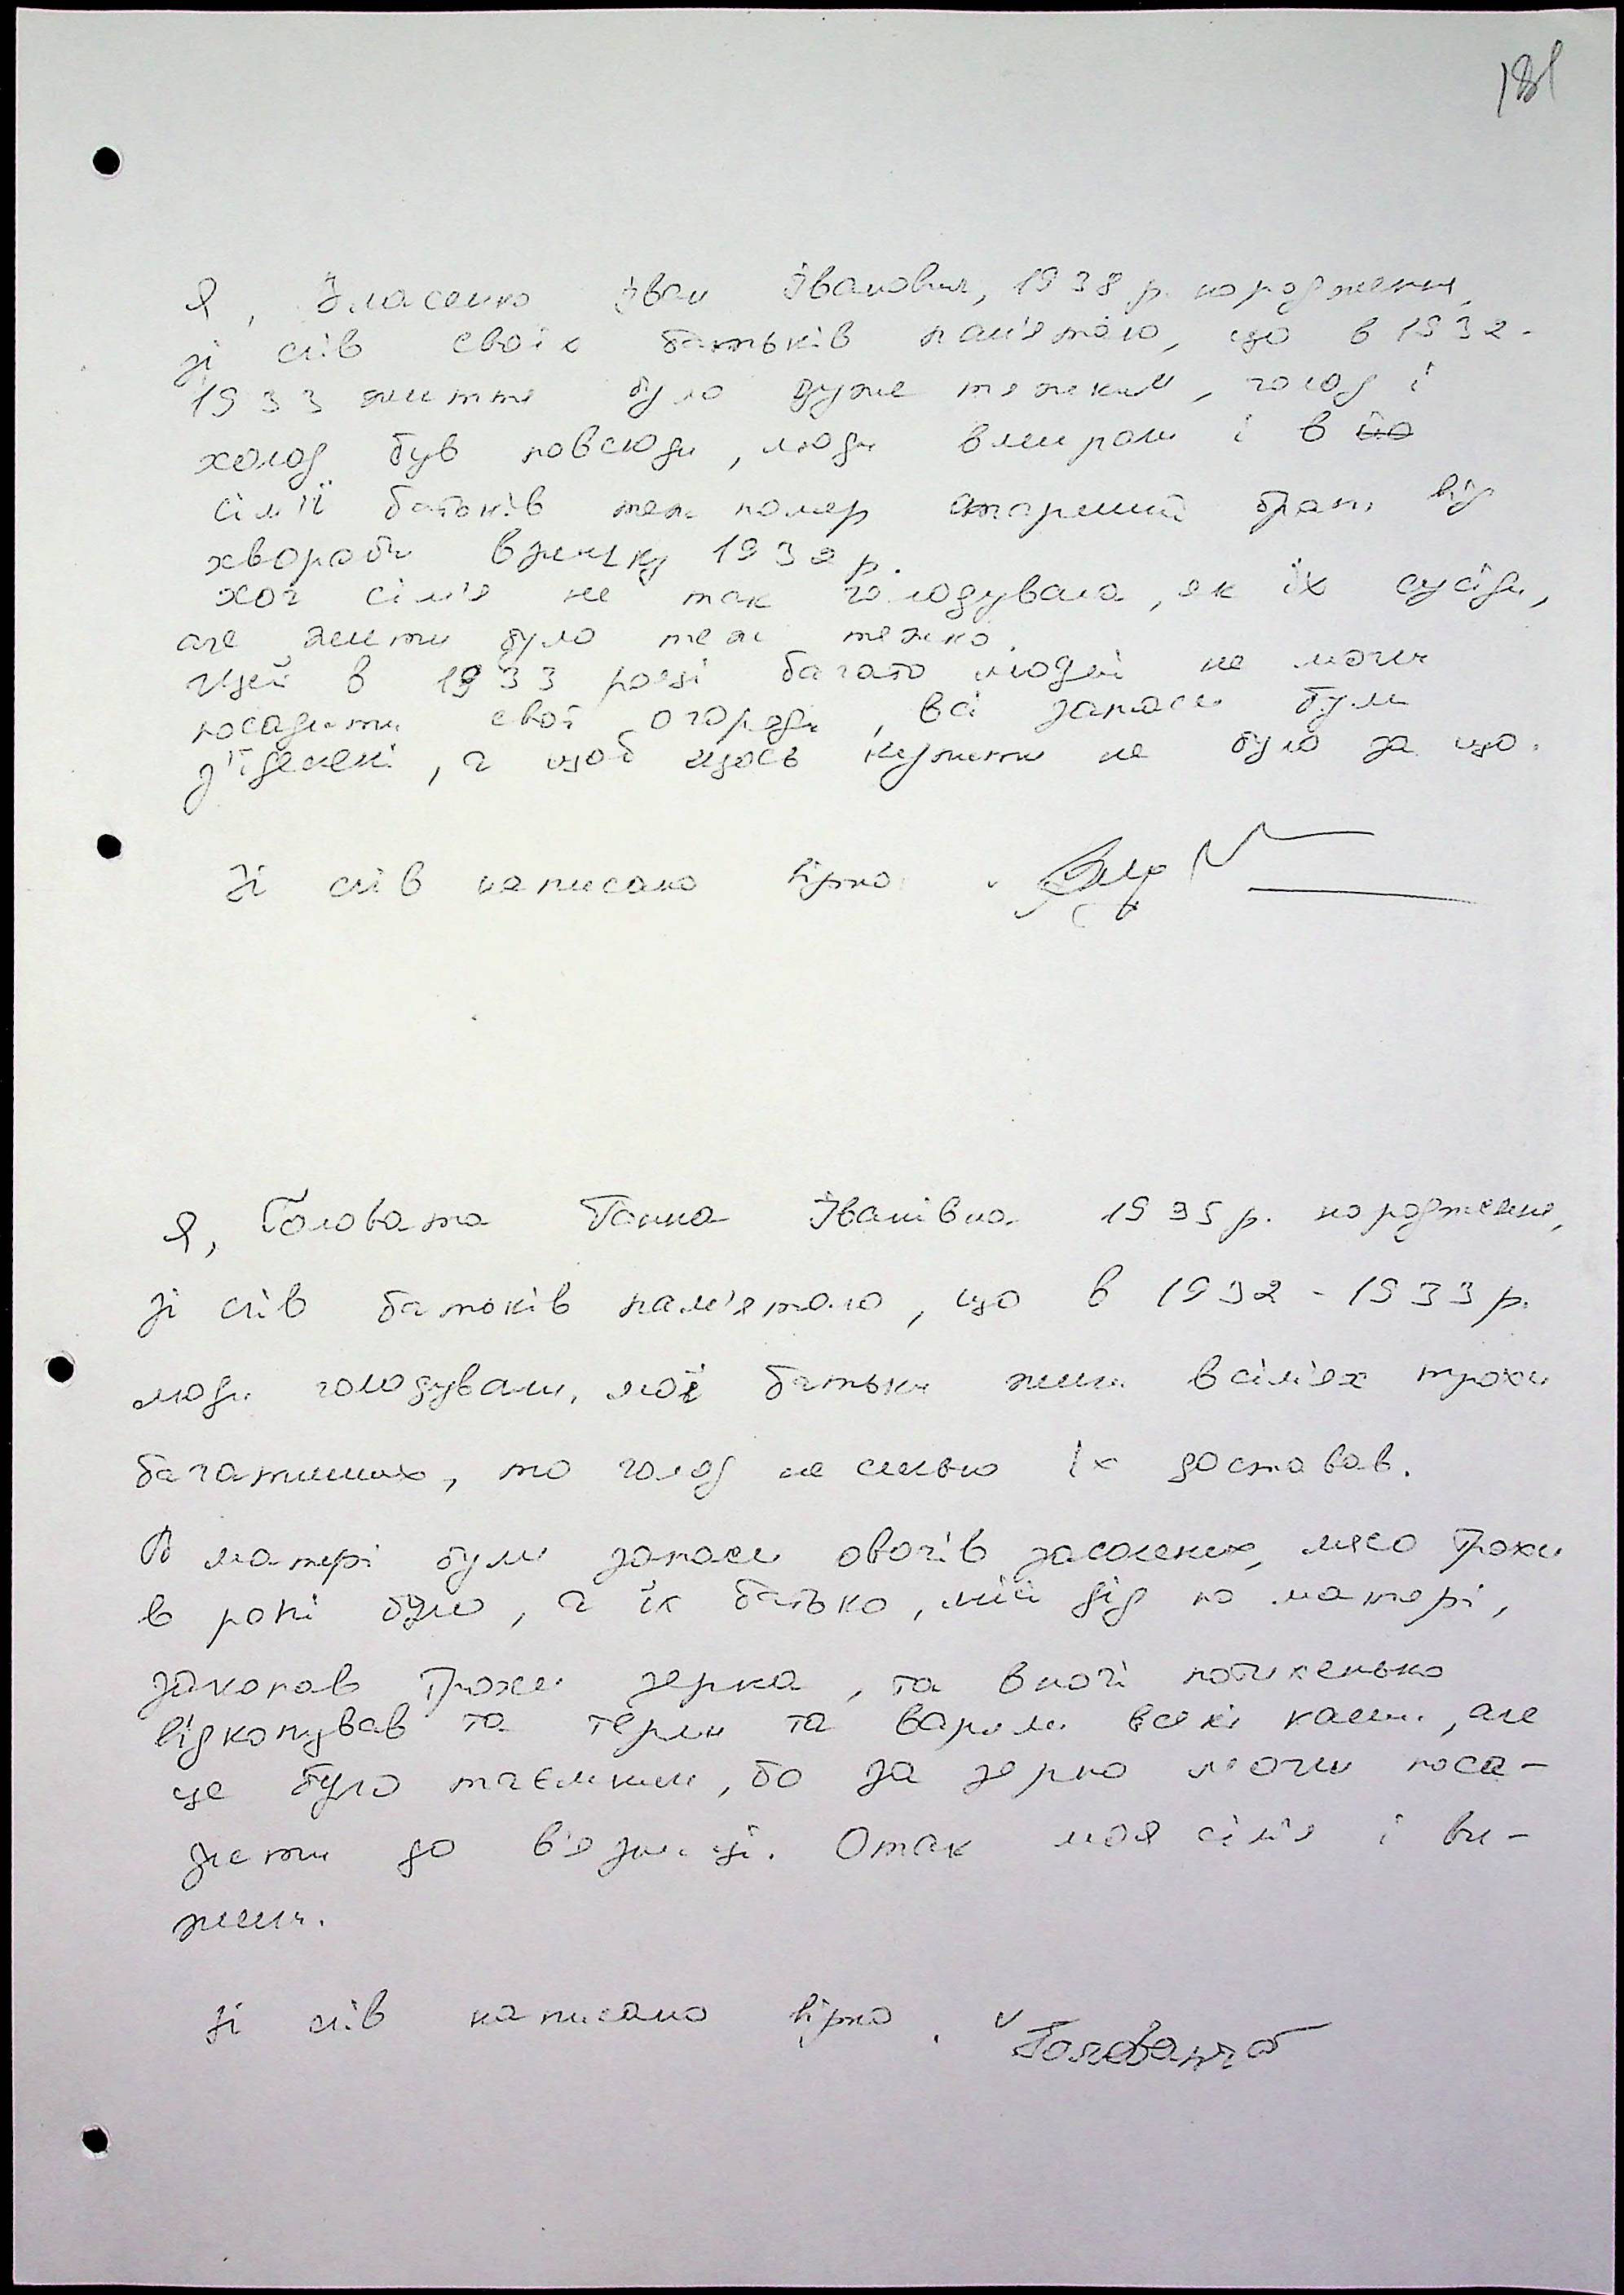 181
Я, Власенко Іван Іванович, 1938 р. народження,
зі слів своїх батьків пам'ятаю, що в 1932-
1933 життя було дуже тяжким, голод і
холод був повсюди, люди вмирали і в
сім'ї батьків теж помер старший брат від
хвороби взимку 1932 р.
хоч сім'я не так голодувала, як їх сусіди,
але жити було теж тяжко.
Ще й в 1933 році багато людей не могли
посадити свої огороди, всі запаси були
з'їдені, а щоб щось купити не було за що.
Зі слів написано вірно.
Я, Головата Ганна Іванівна 1935 р. народження,
зі слів батьків пам'ятаю, що в 1932-1933 р.
люди голодували, мої батьки жили в сім'ях трохи
багатших, то голод не сильно їх доставав.
В матері були запаси овочів засолених, мясо трохи
в ропі було, а їх батько, мій дід по матері,
закопав трохи зерна, та вночі потихенько
відкопував та терли та варили всякі каши, але
це було таємним, бо за зерно могли поса-
дити до в'язниці. Отак моя сім'я і ви-
жили.
Зі слів написано вірно. Головата